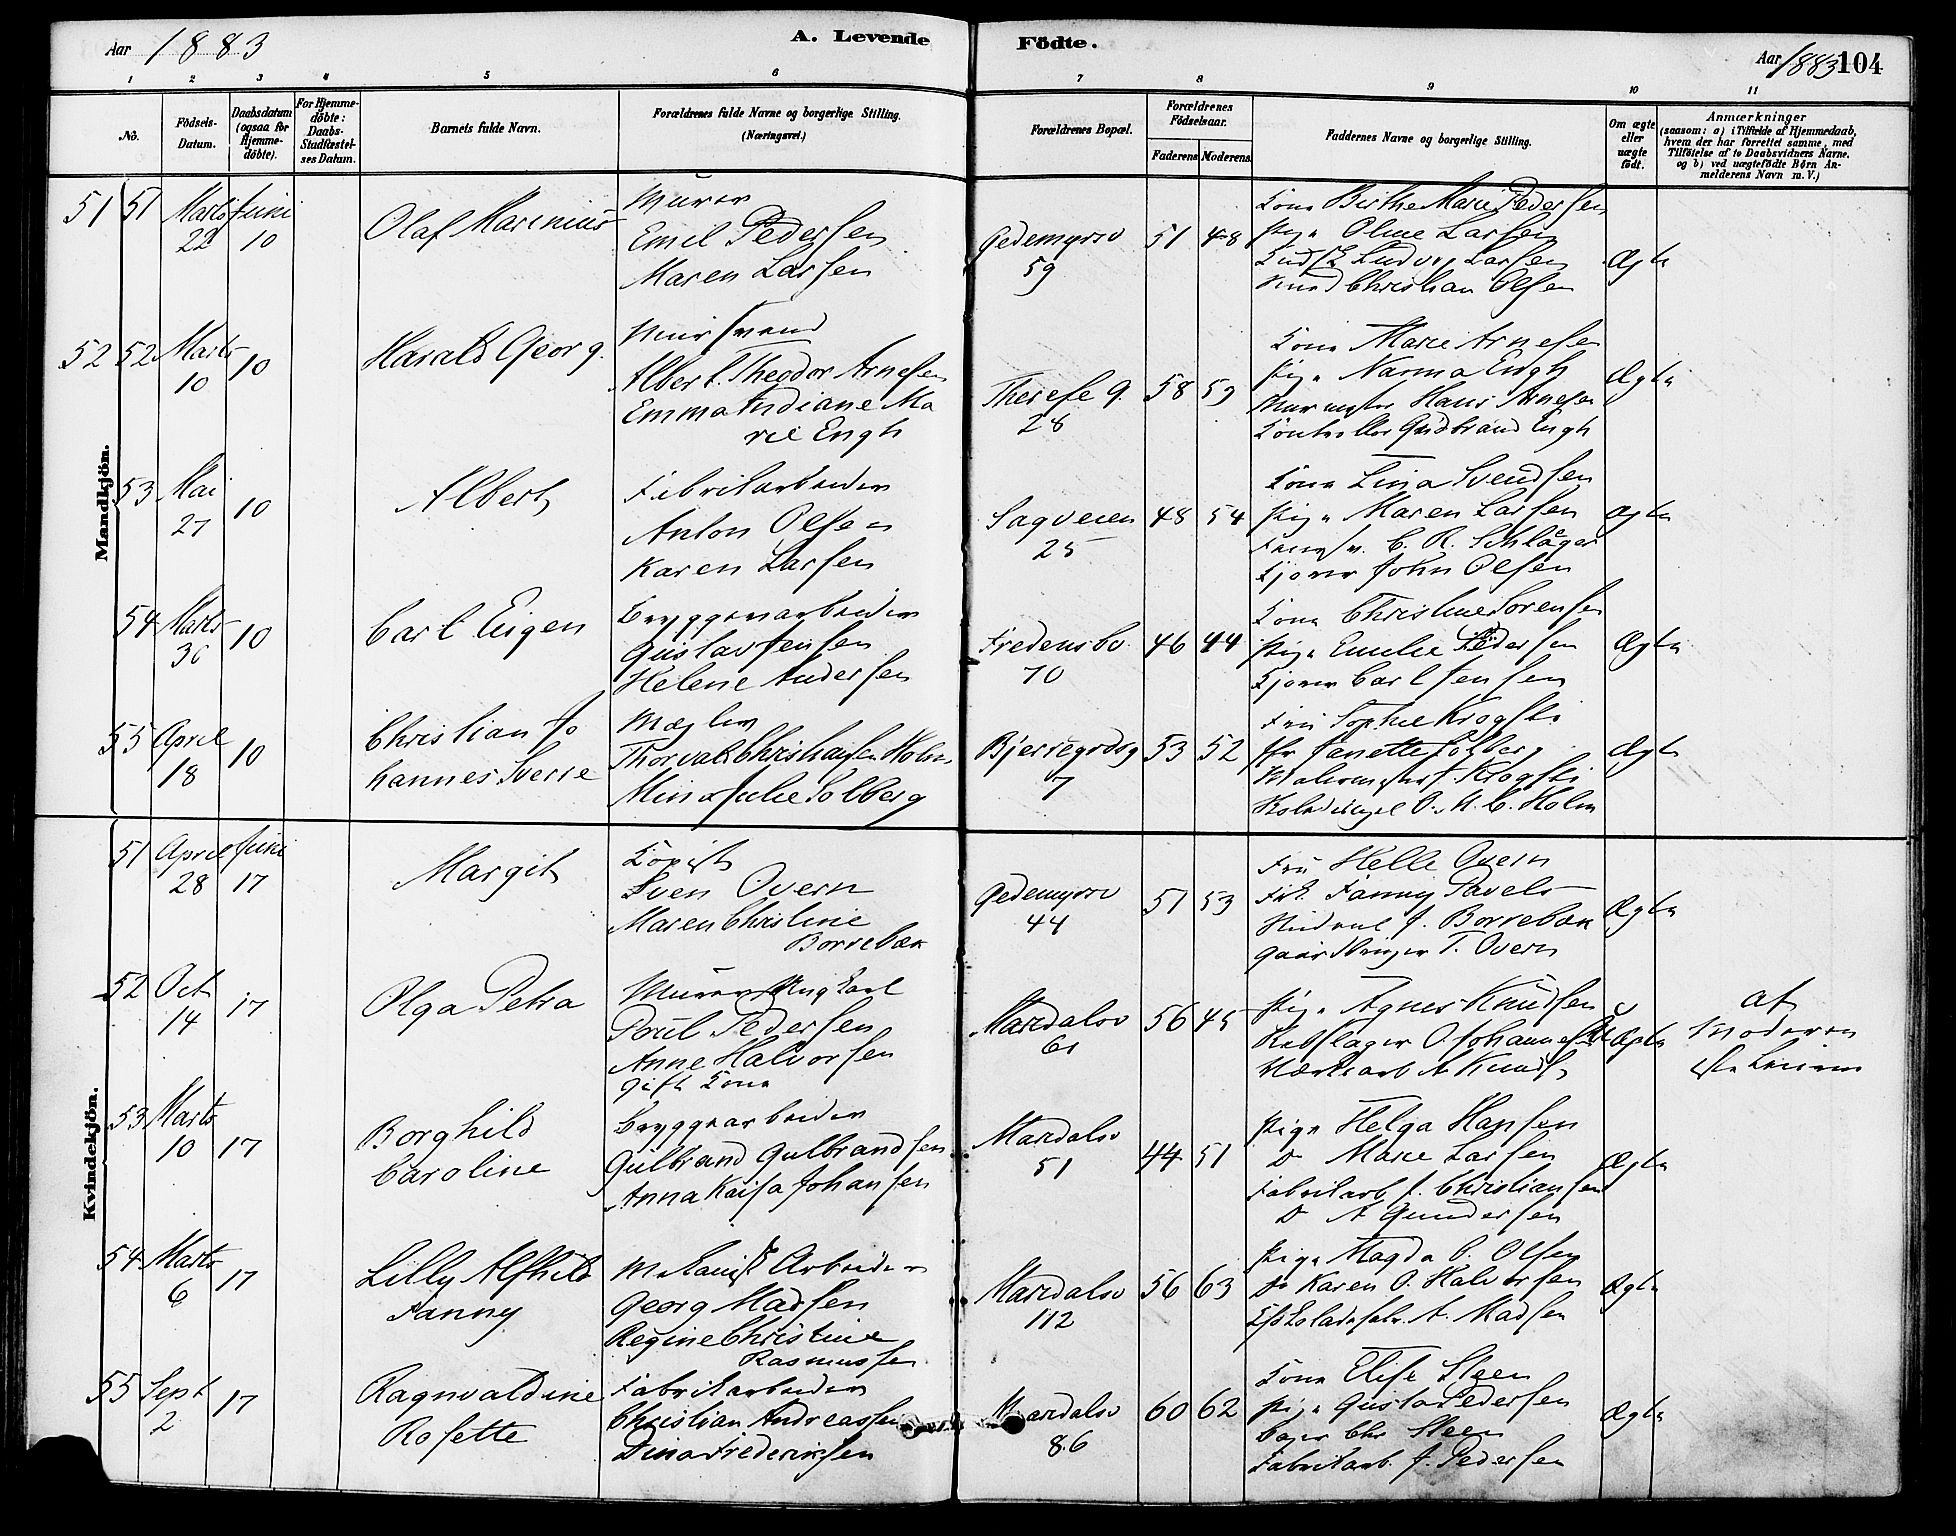 Aar 1883
A. Levende
Födte.
Aar 1883 104
1 2 3 4 5 6 7 8 9 10 11
No.
Födsels-Datum.
Daabsdatum (ogsaa för Hjemme-döbte).
For Hjemme-döbte: Daabs-Stadfæstel-ses Datum.
Barnets fulde Navn.
Forældrenes fulde Navne og borgerlige Stilling. (Næringsvei.)
Forældrenes Bopæl.
Forældrenes Födselsaar.
Faderens Moderens
Faddernes Navne og borgerlige Stilling.
Om ægte eller uægte födt.
Anmærkninger
(saasom: a) i Tilfælde af Hjemmedaab,
hvem der har forrettet samme, med
Tilföielse af to Daabsvidners Navne,
og b) ved uægtefödte Börn An-
melderens Navn m. V.)
Mandkjön.
51 51 Marts 22 Juni 10
Olaf Marinius
Murer
Emil Pedersen
Maren Larsen
Gedemyrsv
59
51 48
Kone Birthe Marie Pedersen
Pige Oline Larsen
Ludvig Larsen
Christian Olsen
Ægte
52 52 Marts 10 10
Harald Georg
Mursvend
Albert Theodor Arnesen
Emma Indiane Ma
rie Engh
Therese g.
28
58 59
Kone Marie Arnesen
Pige Nanna Engh
Murmester Hans Arnesen
Kontrollør Gudbrand Engh
Ægte
53 Mai 27 10
Albert
Fabrikarbeider
Anton Olsen
Karen Larsen
Sagveien
25
48 54
Kone Lina Svendsen
Pige Maren Larsen
C. R. Schlåger
John Olsen
Ægte
54 Marts 30 10
Carl Eugen
Bryggeriarbeider
Gustav Jensen
Helene Andersen
Fredensbo
70
46 44
Kone Christine Sorensen
Pige Emilie Pedersen
Carl Jensen
Ægte
55 April 18 10
Christian Jo
hannes Sverre
Mægler
Thorvald Christiansen Holm
Mina Julie Solberg
Bjerregrdsg
7
53 52
Fru Sophie Krogsti
Fr Janette Solberg
Malermester J. Krogsti
O. M. C. Holm
Ægte
Kvindekjön.
51 April 28 Juni 17
Margit
Kopist
Sven Overn
Maren Christine
Borrebæk
Gedemyrsv
44
51 53
Fru Helle Overn
Frk Fanny Pavels
J. Borrebæk
Gaardbruger T. Overn
Ægte
52 Oct 14 17
Olga Petra
Murer Ungkarl
Poul Pedersen
Anne Halvorsen
gift Kone
Maridalsv
61
56 45
Pige Agnes Knudsen
Rebslager O Johannesen
A Knuds
Uægte
af
Moderen
53 Marts 10 17
Borghild
Caroline
Bryggeriarbeider
Gulbrand Gulbrandsen
Anna Kaisa Johansen
Maridalsv
51
44 51
Pige Helga Hansen
Do Marie Larsen
Fabrikarb J. Christiansen
Do A Gundersen
Ægte
54 Marts 6 17
Lilly Alfhild
Fanny
Mekanisk Arbeider
Georg Madsen
Regine Christine
Rasmussen
Maridalsv
112
56 63
Pige Magda O. Olsen
Do Karen O. Halvorsen
A. Madsen
Ægte
55 Sept 2 17
Ragnvaldine
Rosette
Fabrikarbeider
Christian Andreassen
Dina Frederiksen
Maridalsv
86
60 62
Kone Elise Steen
Pige Gusta Pedersen
Bager Chr Steen
Fabrikarb. J. Pedersen
Ægte